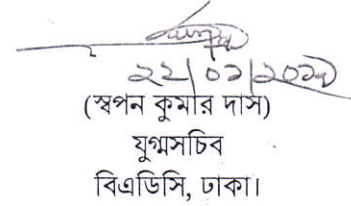 ২২/০১/২০১৯
(স্বপন কুমার দাস)
যুগ্মসচিব
বিএডিসি, ঢাকা।